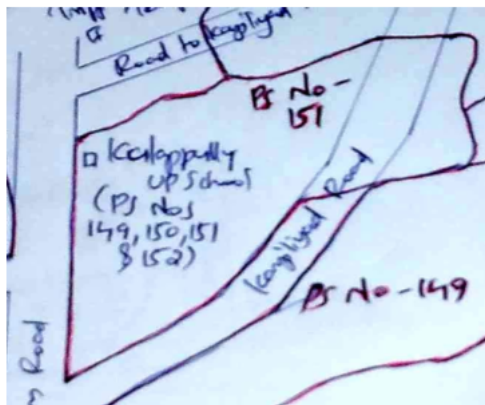 Road to Kayiliyad
PS No-
151
Kailappully
UP School
(PS Nos
149, 150, 151
& 152)
Kayiliyad Road
PS No-149
Road